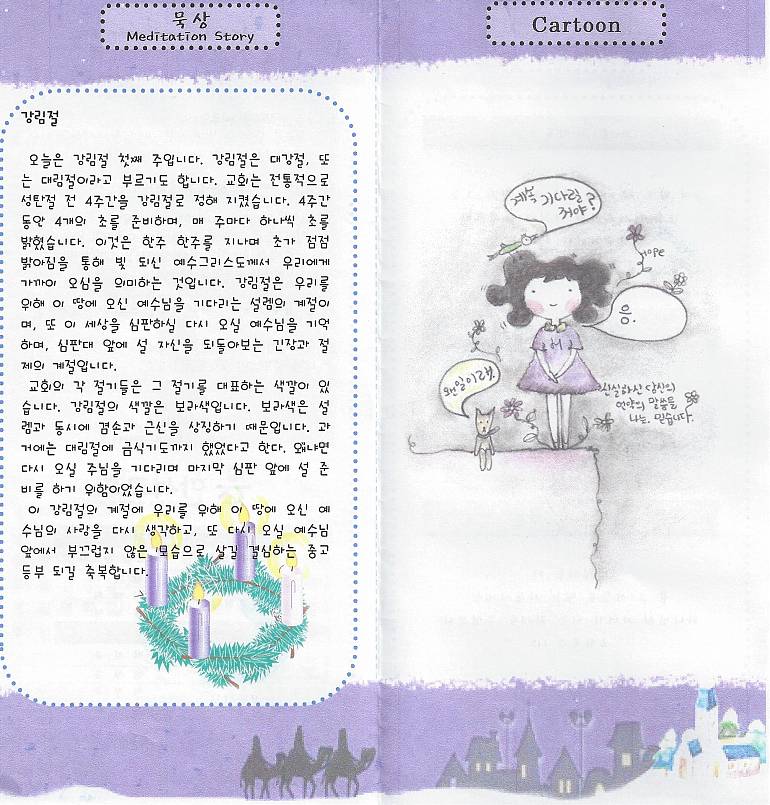 묵상
Meditation Story
강림절
오늘은 강림절 첫째 주입니다. 강림절은 대강절, 또
는 대림절이라고 부르기도 합니다. 교회는 전통적으로
성탄절 전 4주간을 강림절로 정해 지켰습니다. 4주간
동안 4개의 초를 준비하며, 매 주마다 하나씩 초를
밝혔습니다. 이것은 한주 한주를 지나며 초가 점점
밝아짐을 통해 빛 되신 예수그리스도께서 우리에게
가까이 오심을 의미하는 것입니다. 강림절은 우리를
위해 이 땅에 오신 예수님을 기다리는 설렘의 계절이
며, 또 이 세상을 심판하실 다시 오실 예수님을 기억
하며, 심판대 앞에 설 자신을 되돌아보는 긴장과 절
제의 계절입니다.
교회의 각 절기들은 그 절기를 대표하는 색깔이 있
습니다. 강림절의 색깔은 보라색입니다. 보라색은 설
렘과 동시에 겸손과 근신을 상징하기 때문입니다. 과
거에는 대림절에 금식기도까지 했었다고 한다. 왜냐면
다시 오실 주님을 기다리며 마지막 심판 앞에 설 준
비를 하기 위함이었습니다.
이 강림절의 계절에 우리를 위해 이 땅에 오신 예
수님의 사랑을 다시 생각하고, 또 다시 오실 예수님
앞에서 부끄럽지 않은 모습으로 살길 결심하는 중고
등부 되길 축복합니다.
Cartoon
계속 기다릴
거야?
hope
음.
왠일이래.
신실하신 당신의
언약의 말씀들
나는. 믿습니다.